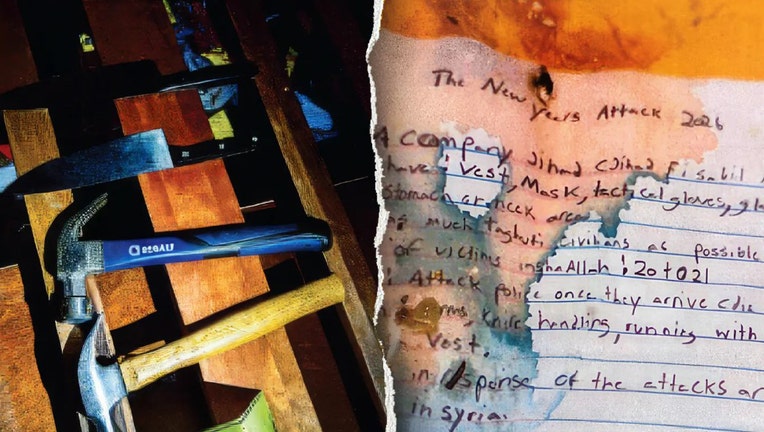 The New Years Attack 2026
A company Jihad (Jihad Fisabil
have : vest, Mask, tactical gloves,
stomach or neck area
much taghuti civilians as possible
of victims inshaAllah : 20 to 21
Attack police once they arrive
arms, Knife handling, running with
Vest.
in response of the attacks
in syria.